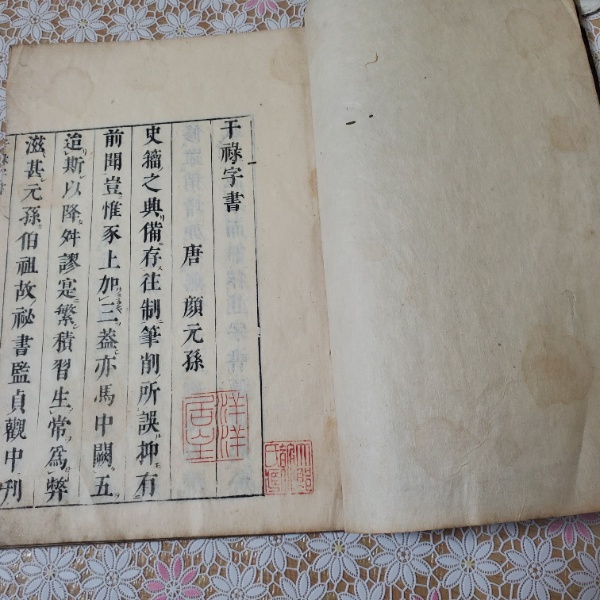 干祿字書
唐 顏元孫
史籒之典備存往制筆削所誤抑有
前聞豈惟豕上加三葢亦馬中闕五
迨斯以降舛謬寔繁積習生常為弊
滋甚元孫伯祖故祕書監貞觀中刊
洋洋
居